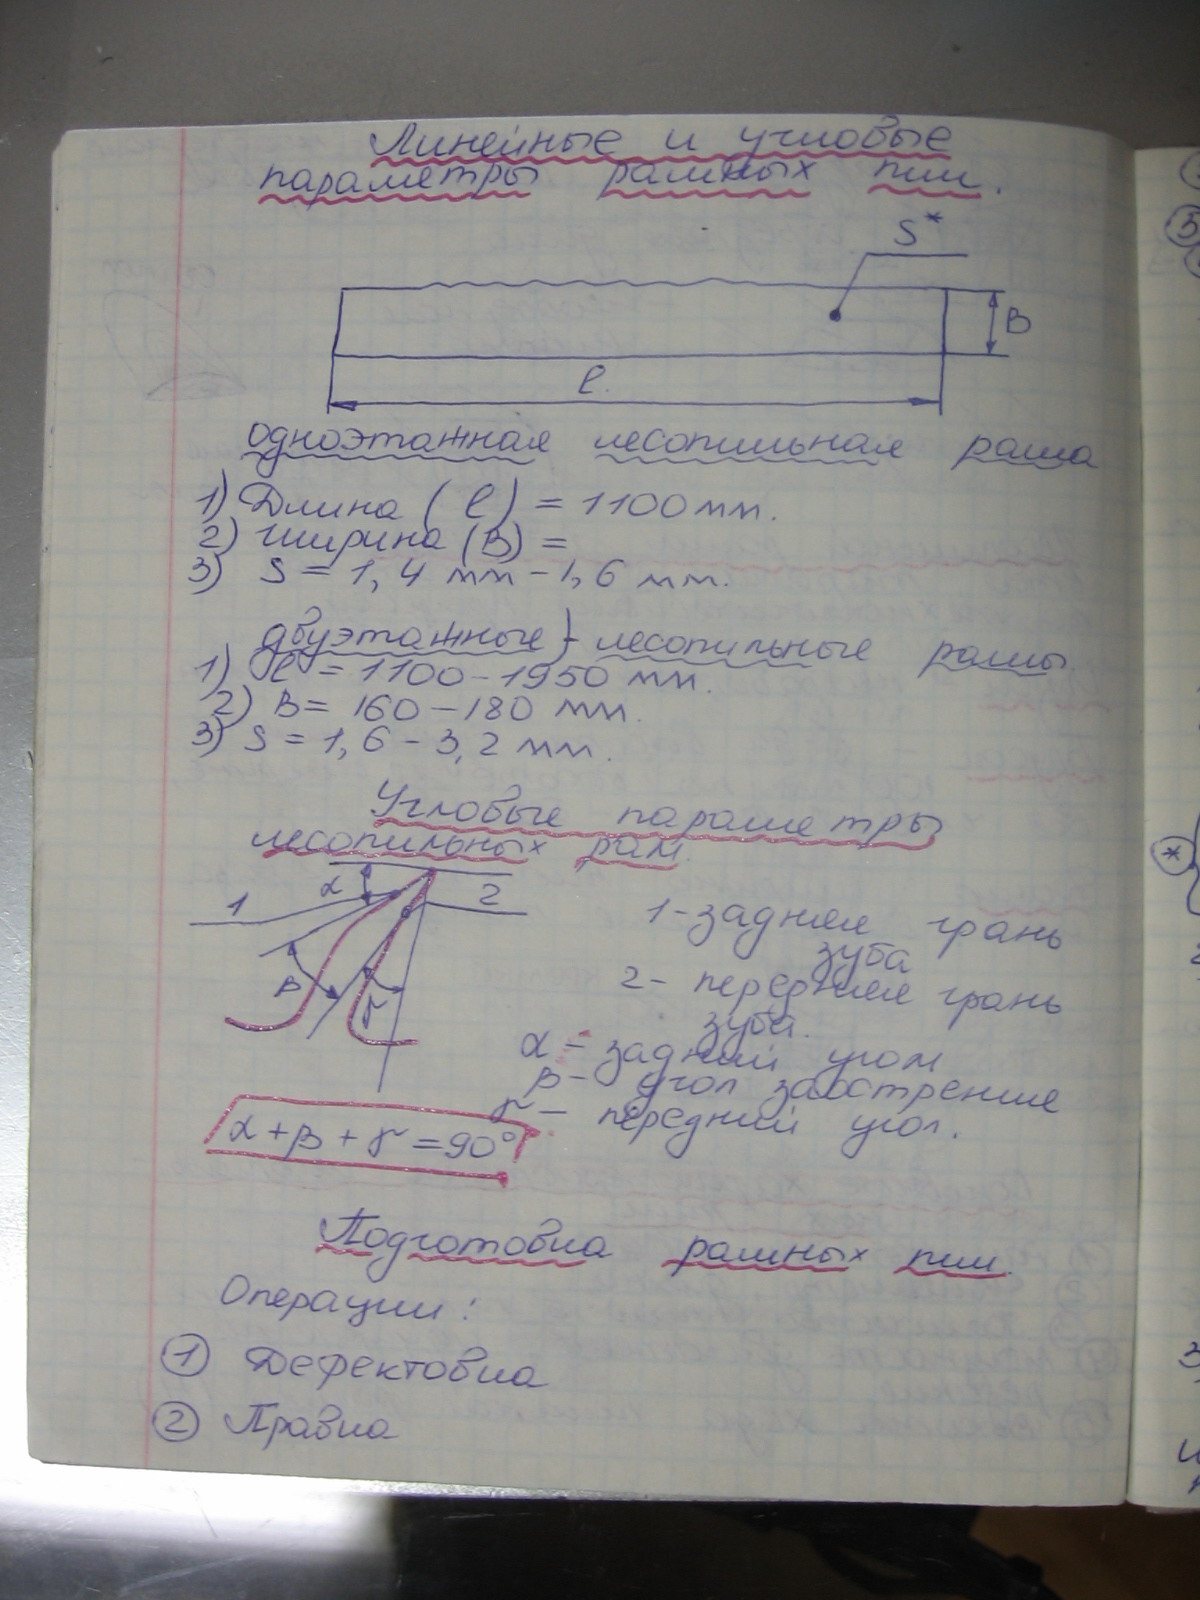 Линейные и угловые
параметры рамных пил.
S*
B
l.
одноэтажная лесопильная рама
1) Длина (l) = 1100 мм.
2) ширина (B) =
3) S = 1,4 мм - 1,6 мм.
двуэтажные - лесопильные рамы
1) l = 1100 - 1950 мм.
2) B = 160 - 180 мм.
3) S = 1,6 - 3,2 мм.
Угловые параметры
лесопильных рам.
α
1
2
β
γ
1 - задняя грань
зуба
2 - передняя грань
зуба.
α - задний угол
β - угол заострения
γ - передний угол.
α + β + γ = 90°
Подготовка рамных пил.
Операции:
① Дефектовка
② Правка